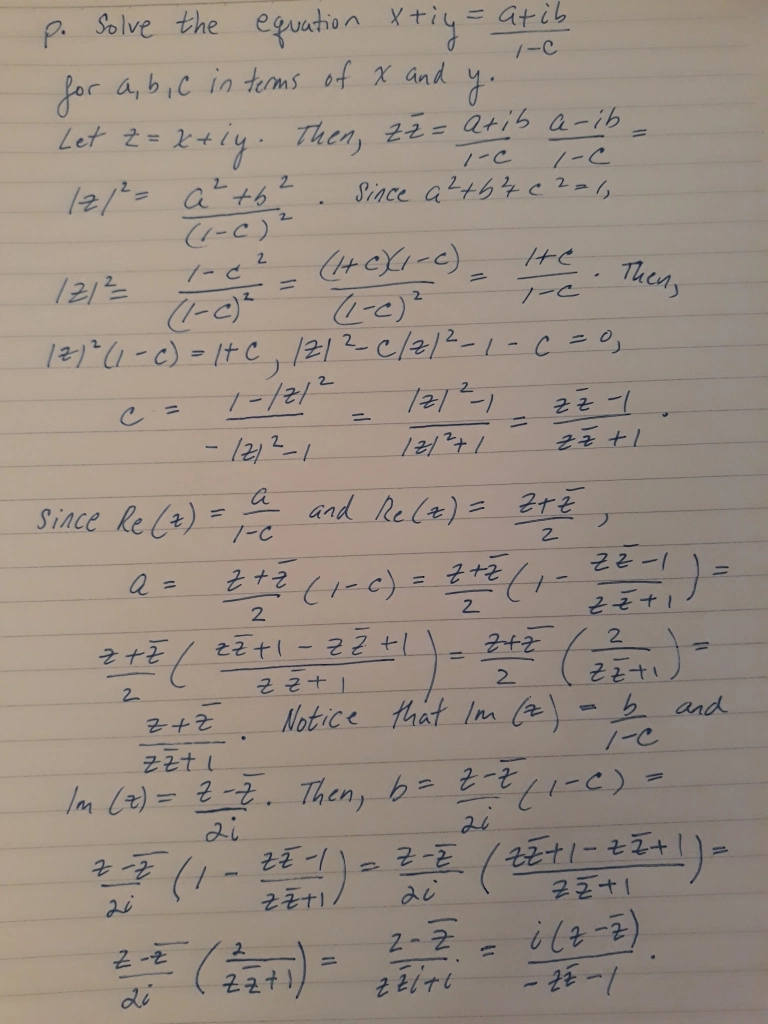 p. Solve the equation x+iy = (a+ib)/(1-c)
for a,b,c in terms of x and y.
Let z = x+iy. Then, zz̄ = (a+ib)/(1-c) (a-ib)/(1-c) =
|z|² = (a²+b²)/(1-c)². Since a²+b²+c²=1,
|z|² = (1-c²)/(1-c)² = (1+c)(1-c)/(1-c)² = (1+c)/(1-c). Then,
|z|²(1-c) = 1+c, |z|²-c|z|²-1-c = 0,
c = (1-|z|²)/(-|z|²-1) = (|z|²-1)/(|z|²+1) = (zz̄-1)/(zz̄+1).
Since Re(z) = a/(1-c) and Re(z) = (z+z̄)/2,
a = (z+z̄)/2 (1-c) = (z+z̄)/2 (1 - (zz̄-1)/(zz̄+1)) =
(z+z̄)/2 ((zz̄+1-zz̄+1)/(zz̄+1)) = (z+z̄)/2 (2/(zz̄+1)) =
(z+z̄)/(zz̄+1). Notice that Im(z) = b/(1-c) and
Im(z) = (z-z̄)/2i. Then, b = (z-z̄)/2i (1-c) =
(z-z̄)/2i (1 - (zz̄-1)/(zz̄+1)) = (z-z̄)/2i ((zz̄+1-zz̄+1)/(zz̄+1)) =
(z-z̄)/2i (2/(zz̄+1)) = (z-z̄)/(zz̄i+i) = i(z-z̄)/(-zz̄-1).